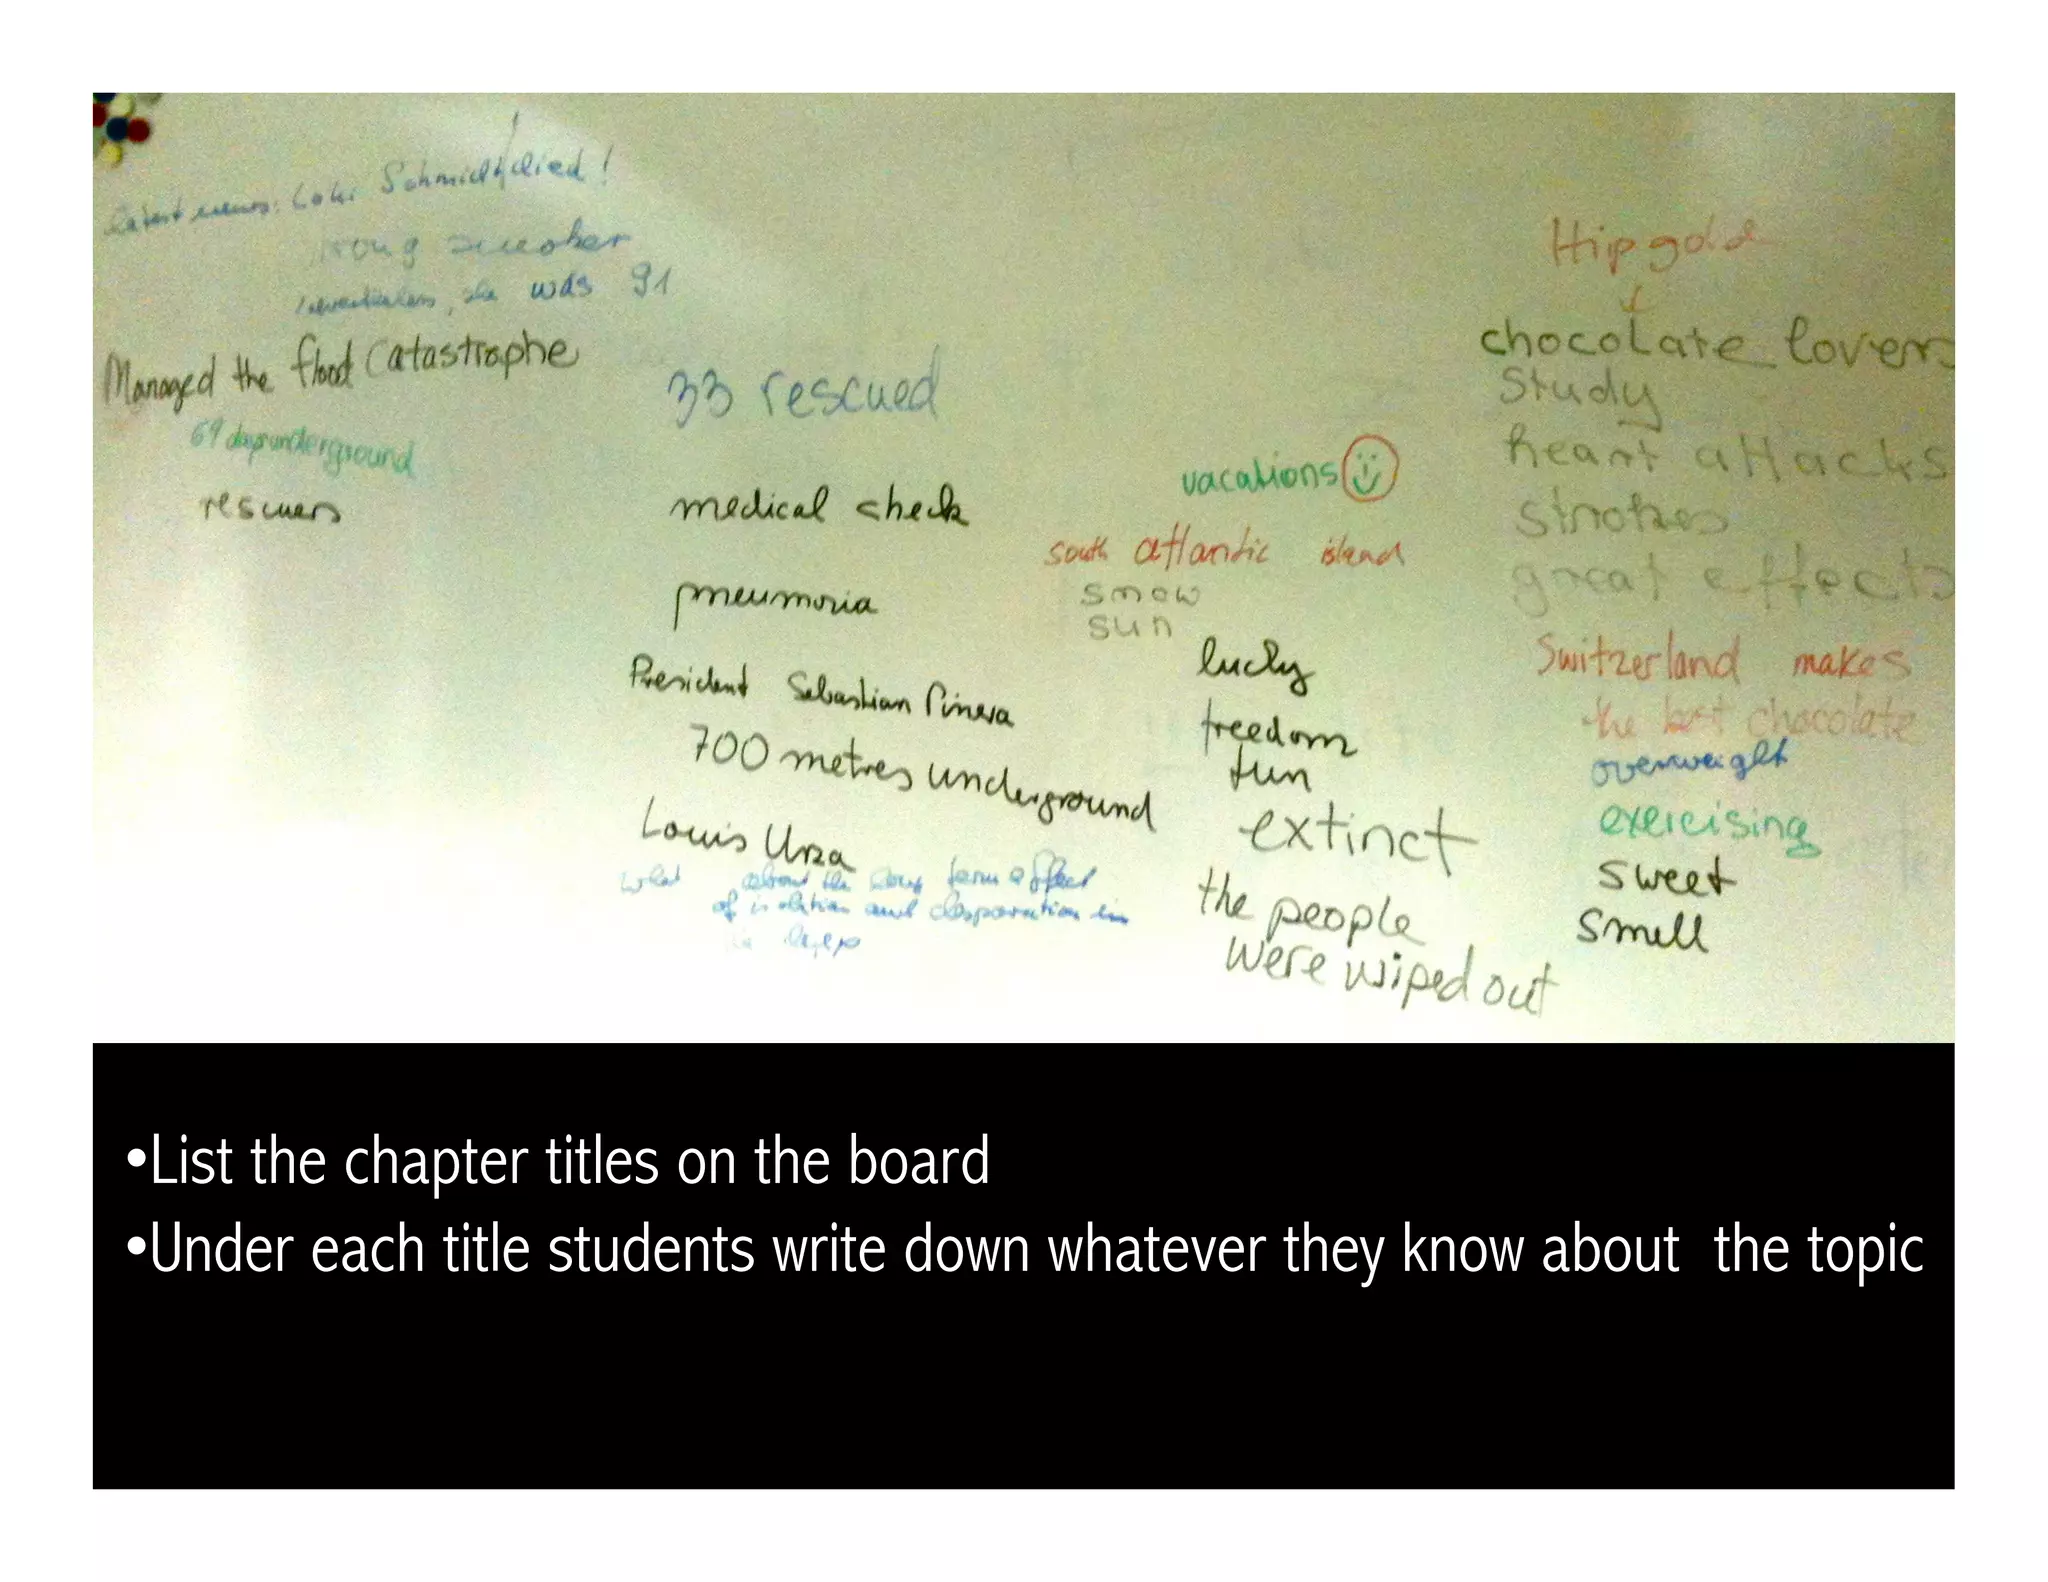 latest news: Loki Schmidt died!
strong smoker
nevertheless, she was 91
Managed the flood Catastrophe
69 days underground
rescuers
33 rescued
medical check
pneumonia
President Sebastian Pinera
700 metres underground
Louis Urza
what about the long term effect
of isolation and desperation in
vacations
south atlantic island
snow
sun
lucky
freedom
fun
extinct
the people
were wiped out
Hip gold
chocolate lovers
study
heart attacks
strokes
great effects
Switzerland makes
the best chocolate
overweight
exercising
sweet
smell
•List the chapter titles on the board
•Under each title students write down whatever they know about the topic